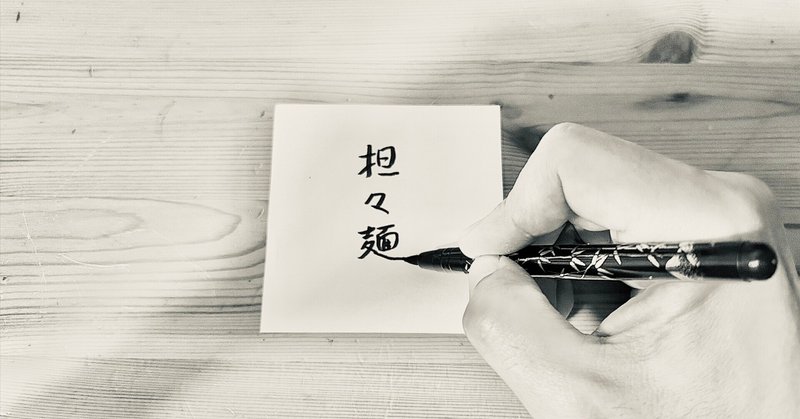 担々麺